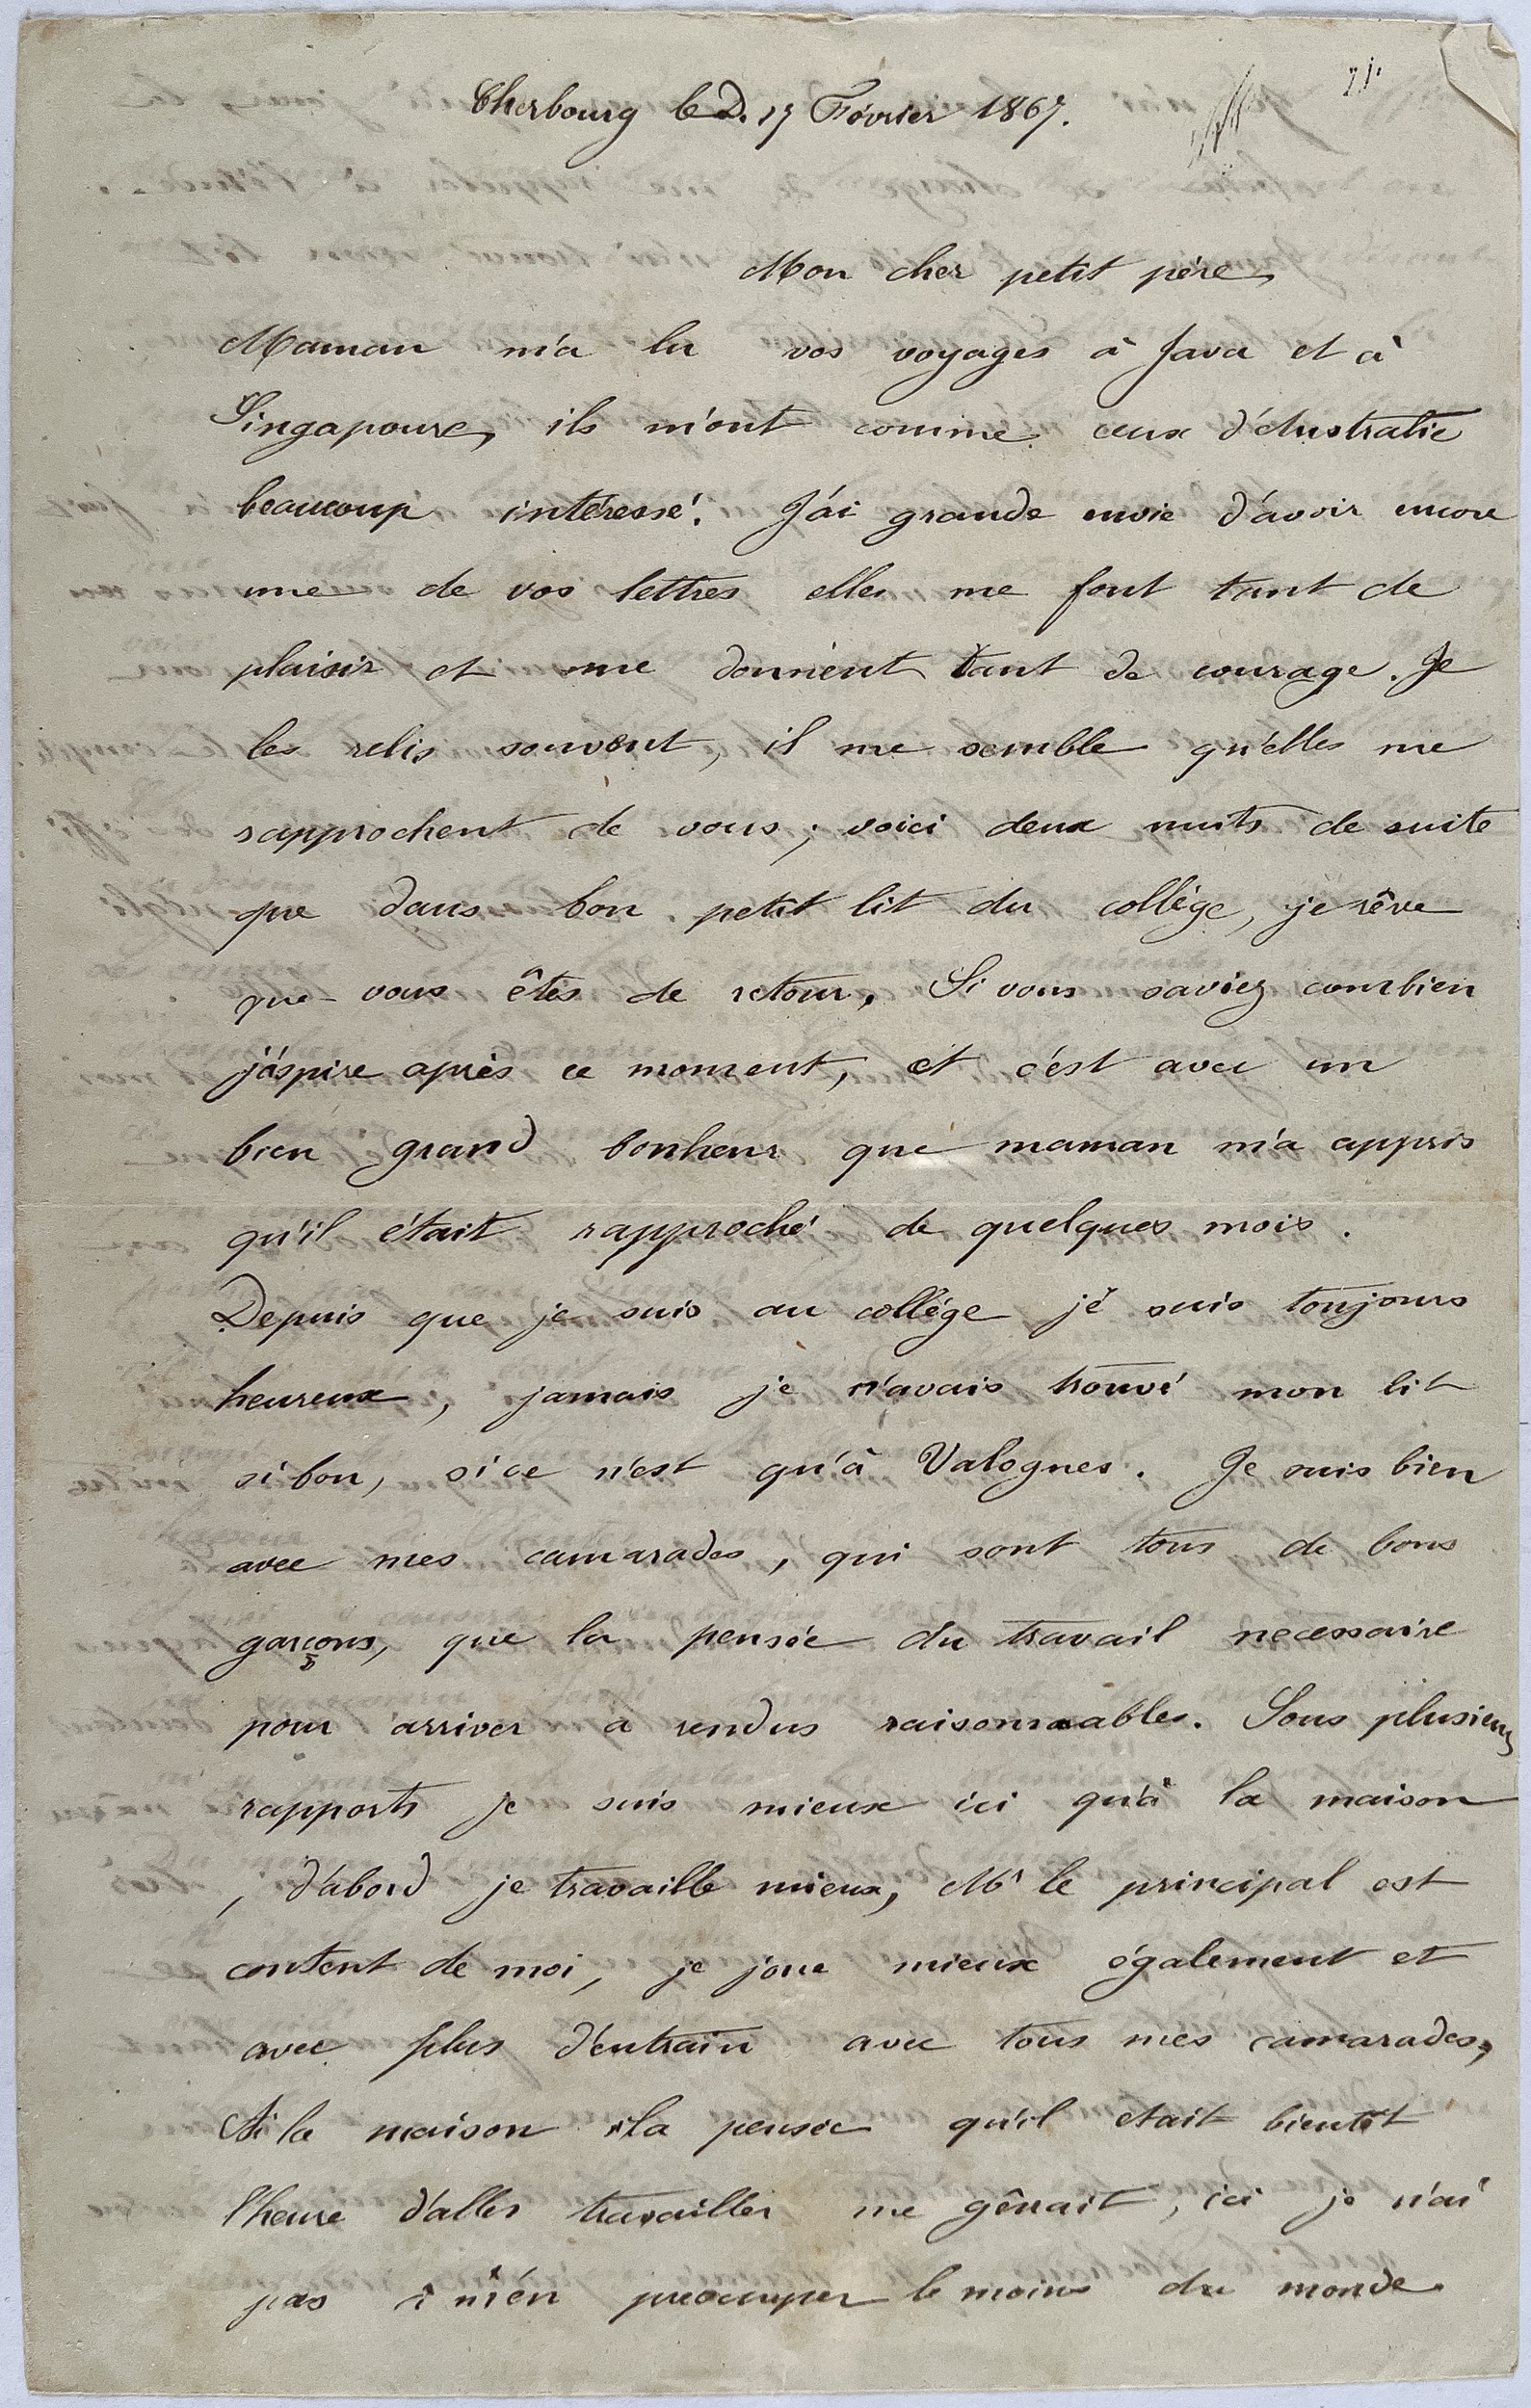 71.
Cherbourg le D. 17 Février 1867.
Mon cher petit père,
Maman m'a lu vos voyages à Java et à
Singapoure, ils m'ont comme ceux d'Australie
beaucoup intéressé. J'ai grande envie d'avoir encore
une de vos lettres elles me font tant de
plaisir et me donnent tant de courage. Je
les relis souvent, il me semble qu'elles me
rapprochent de vous ; voici deux nuits de suite
que dans bon petit lit du collège, je rêve
que vous êtes de retour. Si vous saviez combien
j'aspire après ce moment, et c'est avec un
bien grand bonheur que maman m'a appris
qu'il était rapproché de quelques mois.
Depuis que je suis au collége je suis toujours
heureux, jamais je n'avais trouvé mon lit
si bon, si ce n'est qu'à Valognes. Je suis bien
avec mes camarades, qui sont tous de bons
garçons, que la pensée du travail necessaire
pour arriver a rendus raisonnables. Sous plusieurs
rapports je suis mieux ici qu'à la maison
, d'abord je travaille mieux, Mr le principal est
content de moi, je joue mieux également et
avec plus d'entrain avec tous mes camarades,
A la maison la pensée qu'il etait bientôt
l'heure d'aller travailler me gênait, ici je n'ai
pas à m'en preoccuper le moins du monde